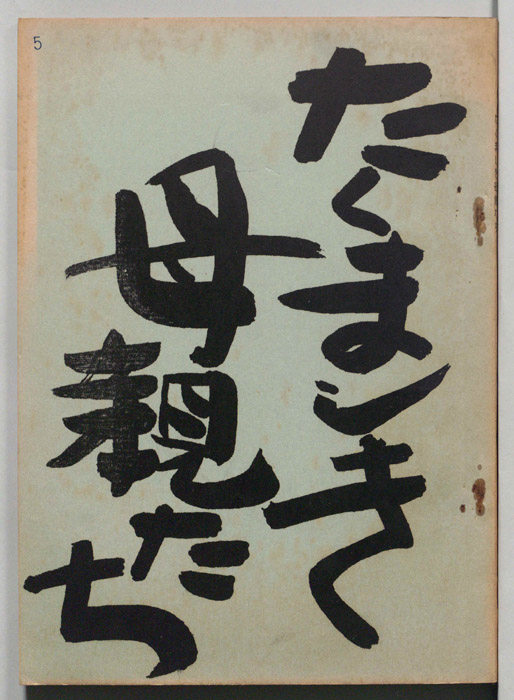 たくましき
母親たち
5